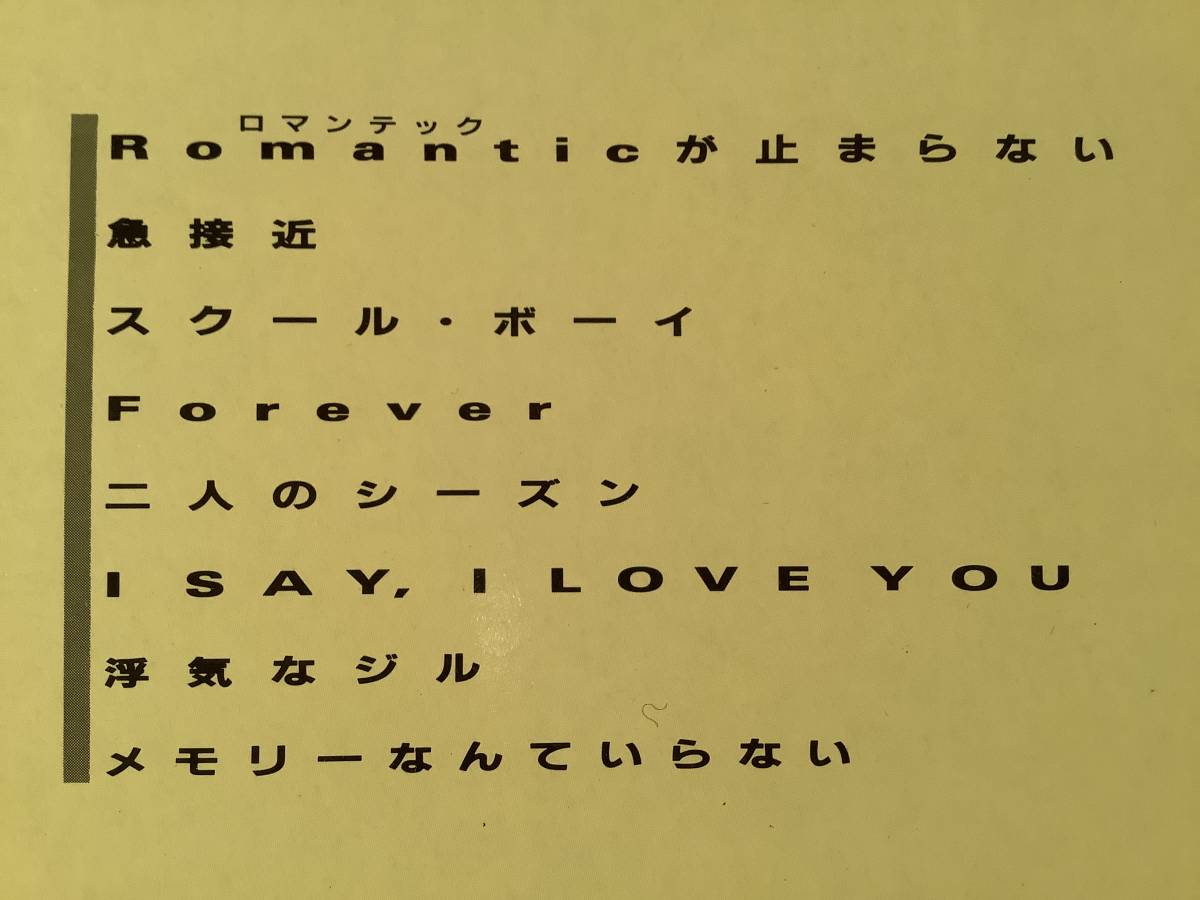 ロマンテック
Romanticが止まらない
急接近
スクール・ボーイ
Forever
二人のシーズン
I SAY, I LOVE YOU
浮気なジル
メモリーなんていらない